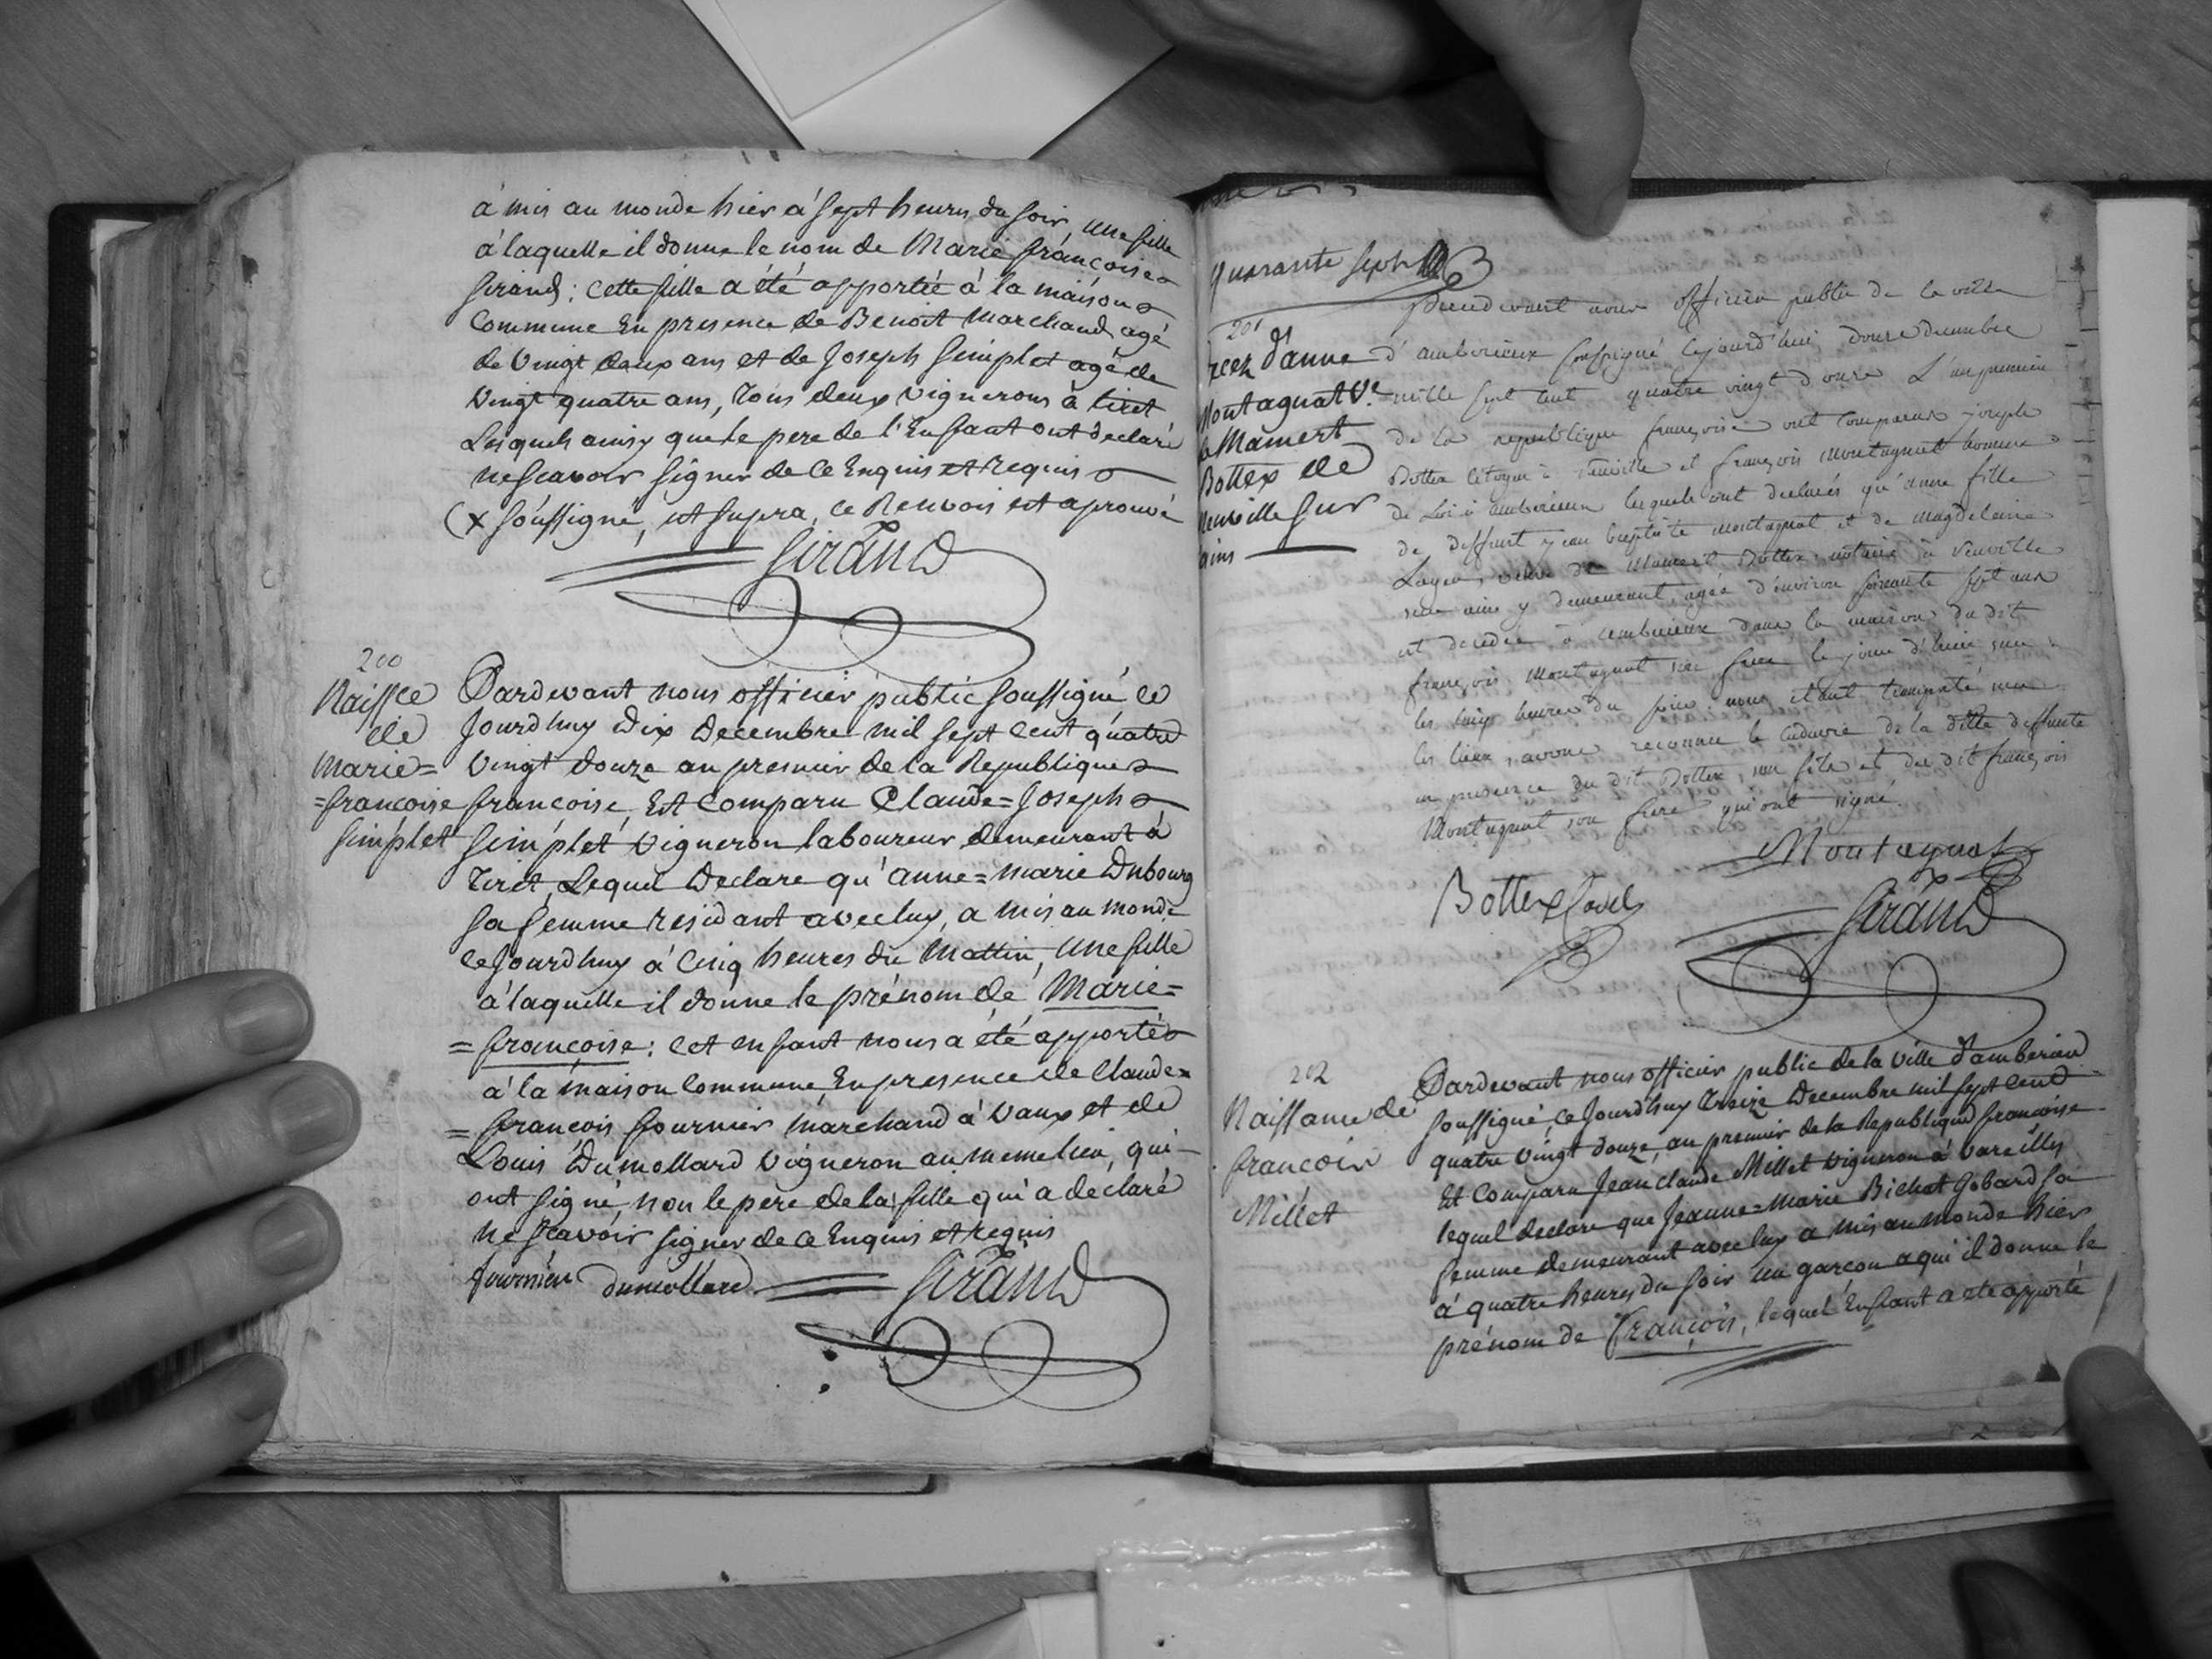 à mis au monde hier à Sept heures du Soir, une fille
à laquelle il donne le nom de Marie françoise
Girand ; Cette fille a été apportée à la maison
Commune En presence de Benoit Marchand agé
de Vingt deux ans et de Joseph Simplet agé de
Vingt quatre ans, tous deux Vignerons à tiret
Lesquels ainsy que le pere de l'Enfant ont declaré
ne Scavoir Signer de Ce Enquis et Requis
(x Soussigné, ut supra, ce Renvois est aprouvé
Girand
200
Naissce
de
Marie=
=françoise
Simplet
Pardevant nous officier public Soussigné ce
Jourdhuy Dix Decembre mil Sept Cent quatre
Vingt Douze an premier de la Republique
françoise, Est Comparu Claude=Joseph
Simplet Vigneron laboureur demeurant à
Tiret, Lequel Declare qu'anne=marie Dubourg
Sa femme residant avec luy, a mis au monde
ce Jourdhuy à Cinq heures du Mattin, Une fille
à laquelle il donne le prénom de Marie=
=françoise : Cet enfant nous a été apporté
à la maison Commune, En presence de Claude=
=françois fournier Marchand à Vaux et de
Louis Dumollard Vigneron au meme lieu, qui
ont Signé, non le pere de la fille qui a declaré
ne Scavoir Signer de Ce Enquis et Requis
fournier dumollard Girand
quarante Sept
201
d'anne
Montagnat Ve.
Mamert
Bottex de
Neuville Sur
ains
Pardevant nous officier public de la ville
d'amberieux soussigné cejourd'hui douze decembre
mille sept cent quatre vingt douze L'an premier
de la republique françoise ont comparus joseph
Bottex Citoyen à Neuville et françois Montagnat homme
de Loi à amberieux lesquels ont declarés qu'anne fille
de deffunt jean baptiste montagnat et de magdelaine
veuve de Mamert Bottex notaire à Neuville
sur ains y demeurant, agée d'environ soixante sept ans
est decedée à amberieux dans la maison du dit
françois Montagnat son frere le jour d'hier sur
les cinq heures du soir. nous etant transporté sur
les lieux, avons reconnu le cadavre de la ditte deffunte
en presence du dit Bottex, son fils et du dit françois
Montagnat son frere qui ont signé.
Montagnat
Bottex
Girand
202
Naissance de
françois
Millet
Pardevant nous officier public de la Ville d'amberieu
Soussigné, Ce Jourdhuy Treize Decembre mil Sept Cent
quatre Vingt Douze, an premier de la Republique françoise
Est Comparu Jean Claude Millet Vigneron à Vareilles
lequel declare que Jeanne=Marie Bichat Gobard Sa
femme demeurant avec luy a mis au monde hier
à quatre heures du Soir un garçon a qui il donne le
prénom de françois, lequel Enfant a eté apporté